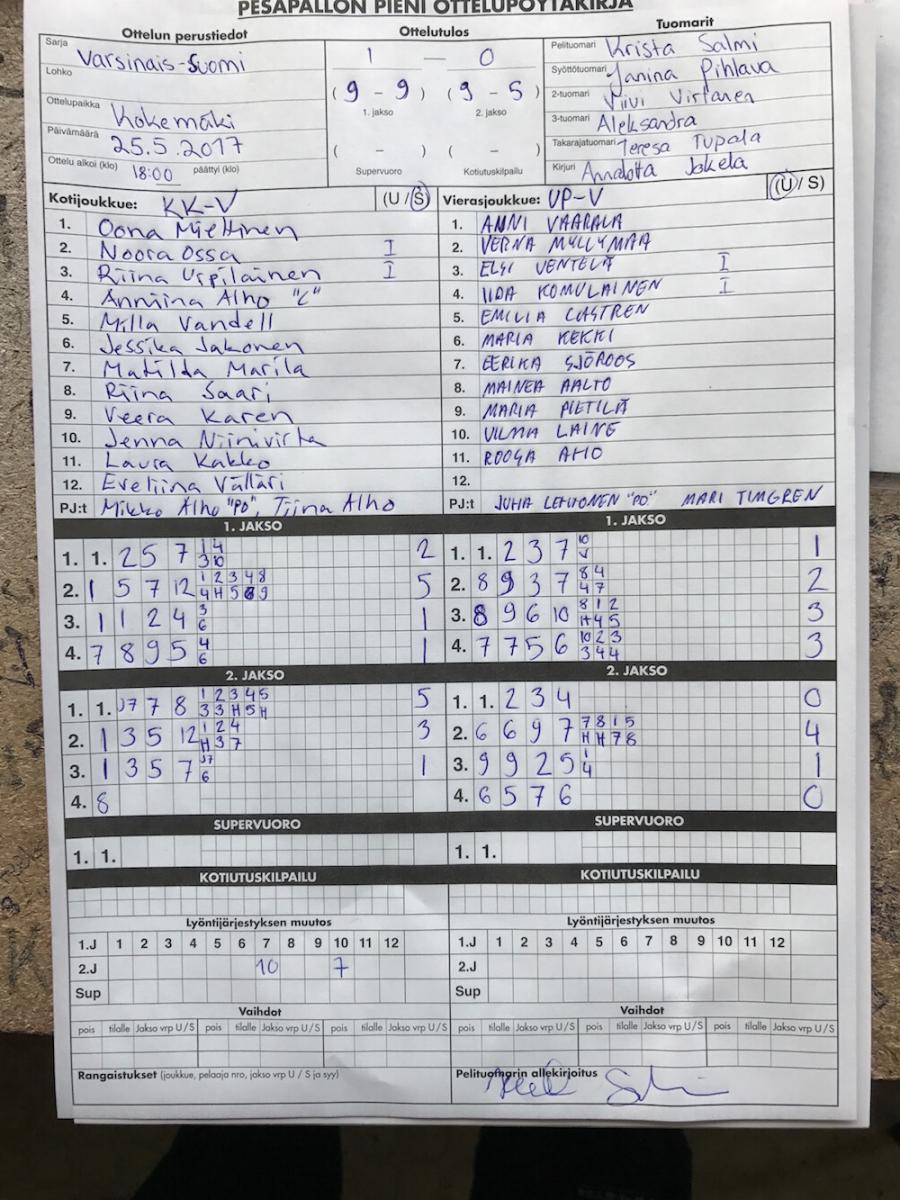 PESÄPALLON PIENI OTTELUPÖYTÄKIRJA
Ottelun perustiedot
Ottelutulos
Tuomarit
Sarja Varsinais-Suomi
Lohko
Ottelupaikka Kokemäki
Päivämäärä 25.5.2017
Ottelu alkoi (klo) 18:00 päättyi (klo)
1 — 0
(9 - 9) (9 - 5)
1. jakso 2. jakso
( - ) ( - )
Supervuoro Kotiutuskilpailu
Pelituomari Krista Salmi
Syöttötuomari Janina Pihlava
2-tuomari Viivi Virtanen
3-tuomari Aleksandra
Takarajatuomari Teresa Tupala
Kirjuri Annalotta Jokela
Kotijoukkue: KK-V (U / S)
1. Oona Miettinen
2. Noora Ossa I
3. Riina Urpilainen I
4. Anniina Alho "C"
5. Milla Vandell
6. Jessika Jakonen
7. Matilda Marila
8. Riina Saari
9. Veera Karen
10. Jenna Niinivirta
11. Laura Kakko
12. Eveliina Välläri
PJ:t Mikko Alho "PO", Tiina Alho
Vierasjoukkue: UP-V (U / S)
1. ANNI VAARALA
2. VERNA MYLLYMAA
3. ELSI VENTELÄ I
4. IIDA KOMULAINEN I
5. EMILIA CASTREN
6. MARIA KEKKI
7. EERIKA SJÖROOS
8. MAINEA AALTO
9. MARIA PIETILÄ
10. VILMA LAINE
11. ROOSA AHO
12.
PJ:t JUHA LEHTONEN "PO" MARI TIMGREN
1. JAKSO
1. 1. 2 5 7 1 4 3 10 2
2. 1 5 7 12 1 2 3 4 8 4 H 5 9 5
3. 1 1 2 4 3 6 1
4. 7 8 9 5 4 6 1
1. JAKSO
1. 1. 2 3 7 10 1
2. 8 9 3 7 8 4 4 7 2
3. 8 9 6 10 8 1 2 H 4 5 3
4. 7 7 5 6 10 2 3 3 4 4 3
2. JAKSO
1. 1. J7 7 8 1 2 3 4 5 3 3 H 5 H 5
2. 1 3 5 12 1 2 4 H 3 7 3
3. 1 3 5 7 J7 6 1
4. 8
2. JAKSO
1. 1. 2 3 4 0
2. 6 6 9 7 7 8 1 5 H H 7 8 4
3. 9 9 2 5 1 4 1
4. 6 5 7 6 0
SUPERVUORO
1. 1.
SUPERVUORO
1. 1.
KOTIUTUSKILPAILU
KOTIUTUSKILPAILU
Lyöntijärjestyksen muutos
1.J 1 2 3 4 5 6 7 8 9 10 11 12
2.J 10 7
Sup
Lyöntijärjestyksen muutos
1.J 1 2 3 4 5 6 7 8 9 10 11 12
2.J
Sup
Vaihdot
pois tilalle Jakso vrp U / S pois tilalle Jakso vrp U / S pois tilalle Jakso vrp U / S
Vaihdot
pois tilalle Jakso vrp U / S pois tilalle Jakso vrp U / S pois tilalle Jakso vrp U / S
Rangaistukset (joukkue, pelaaja nro, jakso vrp U / S ja syy)
Pelituomarin allekirjoitus